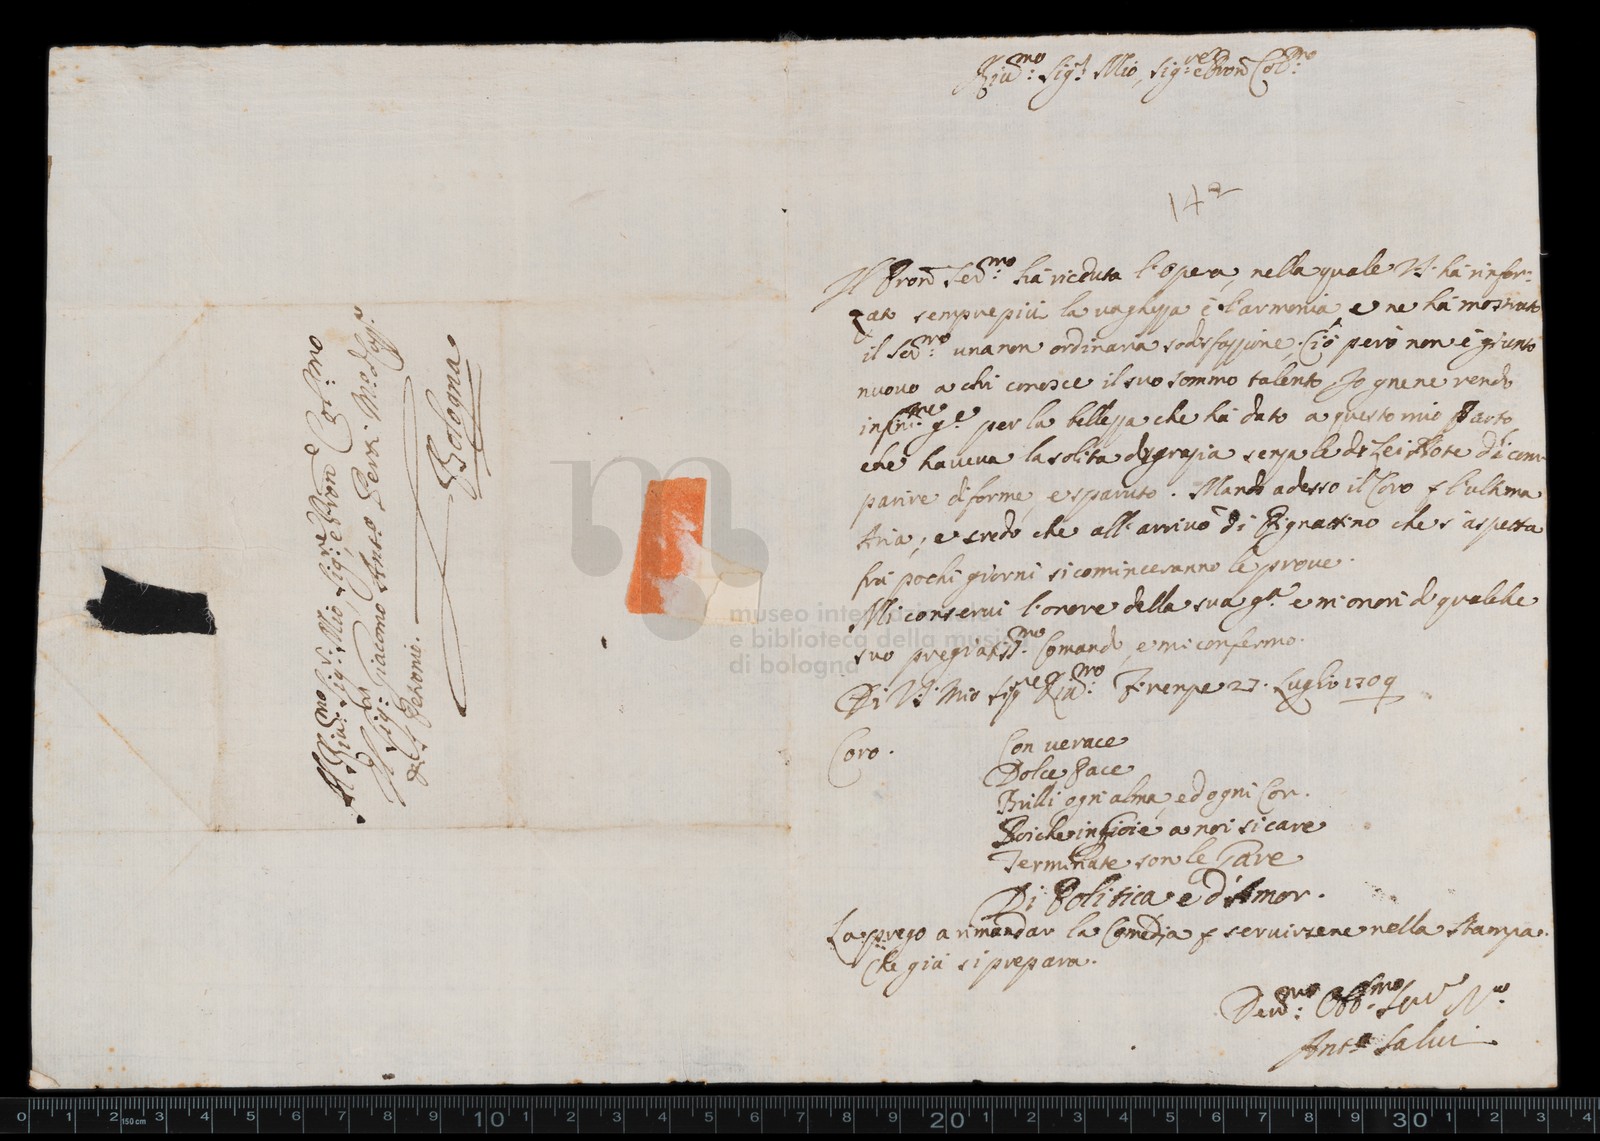 Riu.mo Sig.r Mio, Sig.re e Pron Col.mo
142
Il Pron Ser.mo ha riceuta l'Opera, nella quale V.S. ha rinfor-
zato semprepiù la vaghezza e l'armonia e ne ha mostrato
il Ser.mo una non ordinaria sodisfazzione. Ciò però non è giunto
nuovo a chi conosce il suo sommo talento, Io gnene rendo
infin.me g.e per la bellezza che ha dato a questo mio Parto,
che haveva la solita disgrazia senza le di Lei Note di com-
parire diforme, e sparuto. Mando adesso il Coro p l'ultima
Aria, e credo che all'arrivo di Pignattino che s'aspetta
frà pochi giorni si cominceranno le prove.
Mi conservi l'onore della sua g.a e mi onori di qualche
suo pregiatiss.mo Comando, e mi confermo.
Di V.S. Mio Sig.re Riu.mo Firenze 27. Luglio 1709
Coro.
Con verace
Dolce Pace
Brilli ogni alma, ed ogni Cor.
Poiche in gioie a noi si care
Terminate son le Gare
Di Politica e d'Amor.
La prego a rimandar la Comedia p servirsene nella stampa.
Che già si prepara.
Dev.mo Obb.mo Ser.e V.o
Ant.o Salvi
All Riu.mo Sig.r Mio Sig.re e Pron Col.mo
Il Sig.r Giacomo Ant.o Perti M.ro di Capp.a
di S. Petronio.
Bologna
museo internazionale
e biblioteca della musica
di bologna
0 1 2 3 4 5 6 7 8 9 10 1 2 3 4 5 6 7 8 9 20 1 2 3 4 5 6 7 8 9 30 1 2 3 4
150 cm